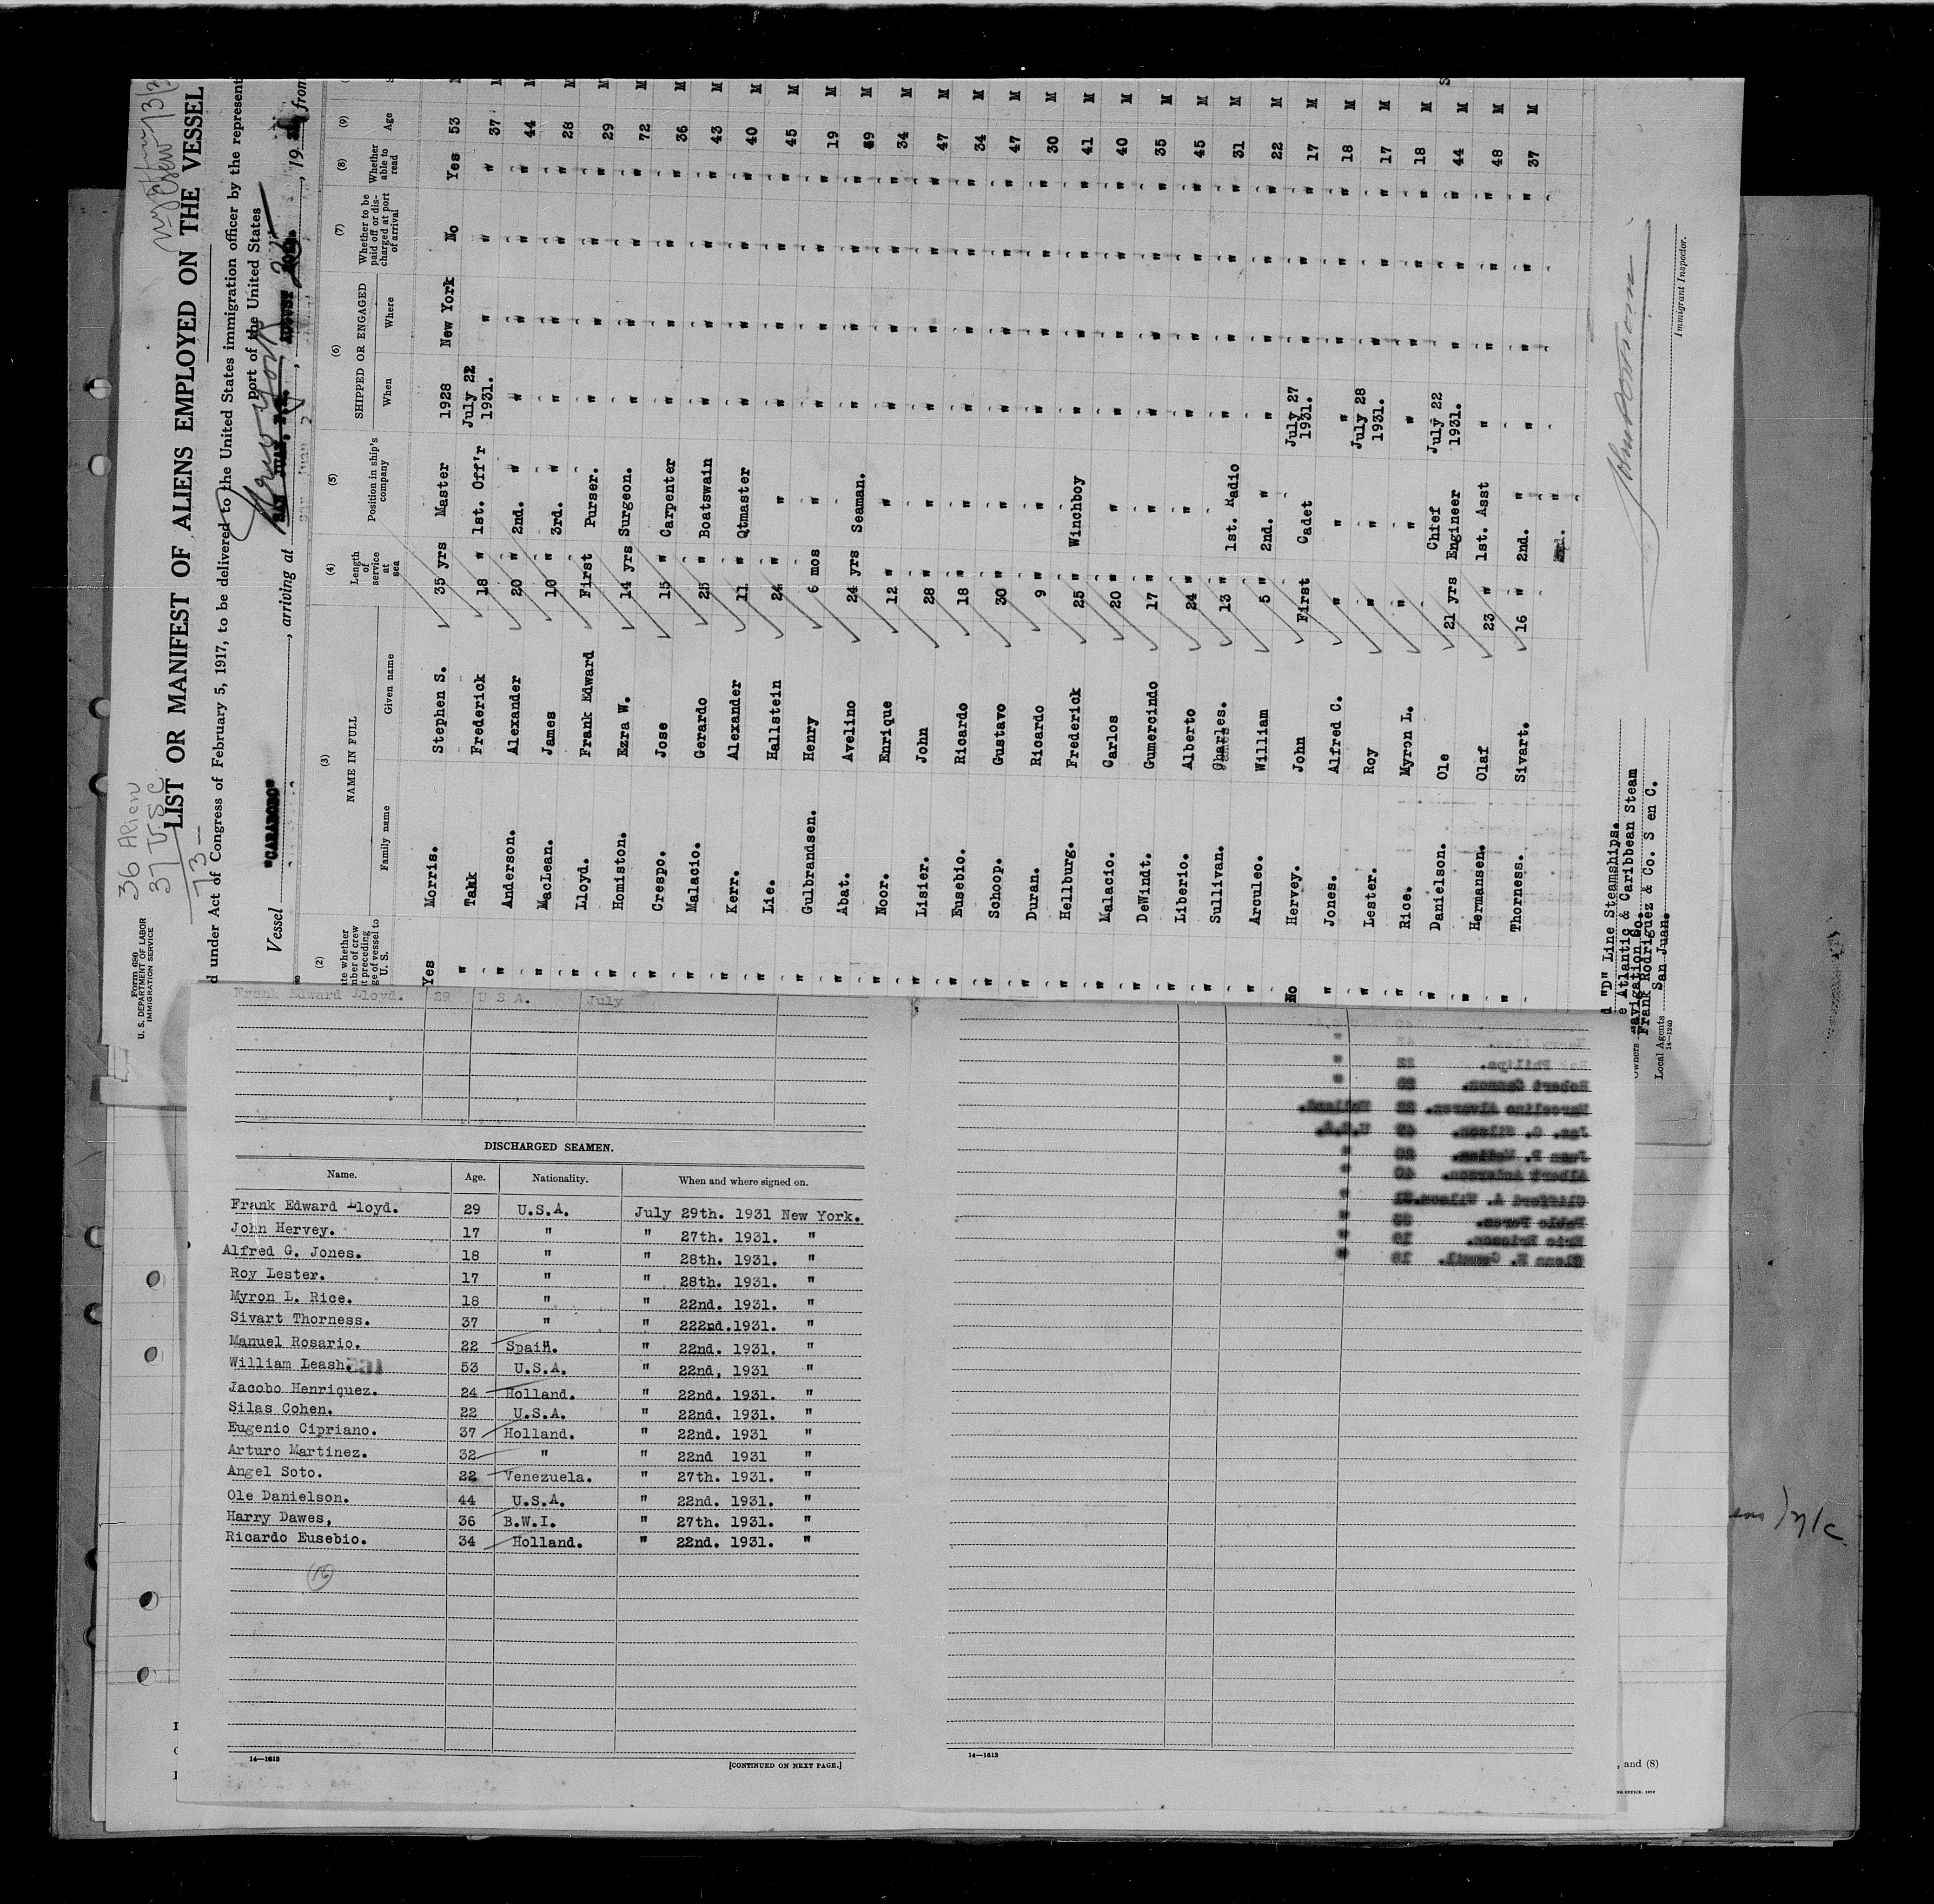 Form 680
U. S. DEPARTMENT OF LABOR
IMMIGRATION SERVICE
36 Alien
37 U.S.C
73
LIST OR MANIFEST OF ALIENS EMPLOYED ON THE VESSEL
d under Act of Congress of February 5, 1917, to be delivered to the United States immigration officer by the represent
port of the United States
Vessel "CARABOBO", arriving at New York, 19 from
(2) (3) (4) (5) (6) (7) (8) (9)
NAME IN FULL
SHIPPED OR ENGAGED
te whether
mber of crew
t preceding
ge of vessel to
U. S.
Family name Given name Length of service at sea Position in ship's company When Where Whether to be paid off or discharged at port of arrival Whether able to read Age
Yes Morris. Stephen S. 35 yrs Master 1928 New York No Yes 53
" Takk Frederick 18 " 1st. Off'r July 22 1931. " " " 37 M
" Anderson. Alexander 20 " 2nd. " " " " " 44
" MacLean. James 10 " 3rd. " " " " " 28 M
" Lloyd. Frank Edward First Purser. " " " " 29 M
" Homiston. Ezra W. 14 yrs Surgeon. " " " " 72 M
" Crespo. Jose 15 " Carpenter " " " " 36 M
" Malacio. Gerardo 25 " Boatswain " " " " 43 M
" Kerr. Alexander 11 " Qtmaster " " " " 40 M
" Lie. Hallstein 24 " " " " " " 45 M
" Gulbrandsen. Henry 6 mos " " " " " 19 M
" Abat. Avelino 24 yrs Seaman. " " " " 59 M
" Noor. Enrique 12 " " " " " " 34 M
" Lisier. John 28 " " " " " " 47 M
" Eusebio. Ricardo 18 " " " " " " 34 M
" Schoop. Gustavo 30 " " " " " " 47 M
" Duran. Ricardo 9 " " " " " " 30 M
" Hellburg. Frederick 25 " Winchboy " " " " 41 M
" Malacio. Carlos 20 " " " " " " 40 M
" DeWindt. Gumercindo 17 " " " " " " 35 M
" Liberic. Alberto 24 " " " " " " 45 M
" Sullivan. Charles. 13 " 1st. Radio " " " " 31 M
" Arculeo. William 5 " 2nd. " " " " " 22 M
No Hervey. John First Cadet July 27 1931. " " " 17 M
" Jones. Alfred C. " " " " " " 18 M
" Lester. Roy " " July 28 1931. " " " 17 M
" Rice. Myron L. " " " " " " 18 M
" Danielson. Ole 21 yrs Chief Engineer July 22 1931. " " " 44 M
" Hermansen. Olaf 23 " 1st. Asst " " " " 48 M
" Thorness. Sivart. 16 " 2nd. " " " " " 37 M
d "D" Line Steamships.
e Atlantic & Caribbean Steam
Owners Navigation Co.
Frank Rodriguez & Co. S en C.
Local Agents San Juan.
14—1240
Immigrant Inspector.
Frank Edward Lloyd. 29 U S A. July
DISCHARGED SEAMEN.
Name. Age. Nationality. When and where signed on.
Frank Edward Lloyd. 29 U.S.A. July 29th. 1931 New York.
John Hervey. 17 " " 27th. 1931. "
Alfred G. Jones. 18 " " 28th. 1931. "
Roy Lester. 17 " " 28th. 1931. "
Myron L. Rice. 18 " " 22nd. 1931. "
Sivart Thorness. 37 " " 222nd.1931. "
Manuel Rosario. 22 Spain. " 22nd. 1931. "
William Leash. 53 U.S.A. " 22nd, 1931 "
Jacobo Henriquez. 24 Holland. " 22nd. 1931. "
Silas Cohen. 22 U.S.A. " 22nd. 1931. "
Eugenio Cipriano. 37 Holland. " 22nd. 1931 "
Arturo Martinez. 32 " " 22nd 1931 "
Angel Soto. 22 Venezuela. " 27th. 1931. "
Ole Danielson. 44 U.S.A. " 22nd. 1931. "
Harry Dawes, 36 B.W.I. " 27th. 1931. "
Ricardo Eusebio. 34 Holland. " 22nd. 1931. "
16
14—1613
[CONTINUED ON NEXT PAGE.]
14—1613
, and (8)